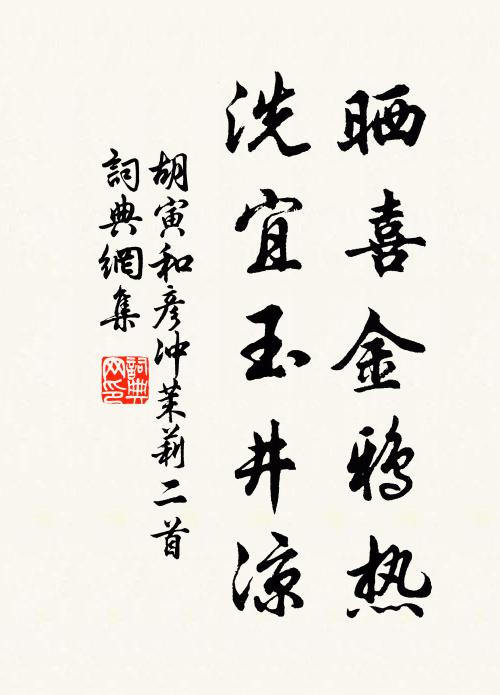 晒喜金鸦热
洗宜玉井凉
胡寅和彦冲茉莉二首
詞典網集
詞典网印